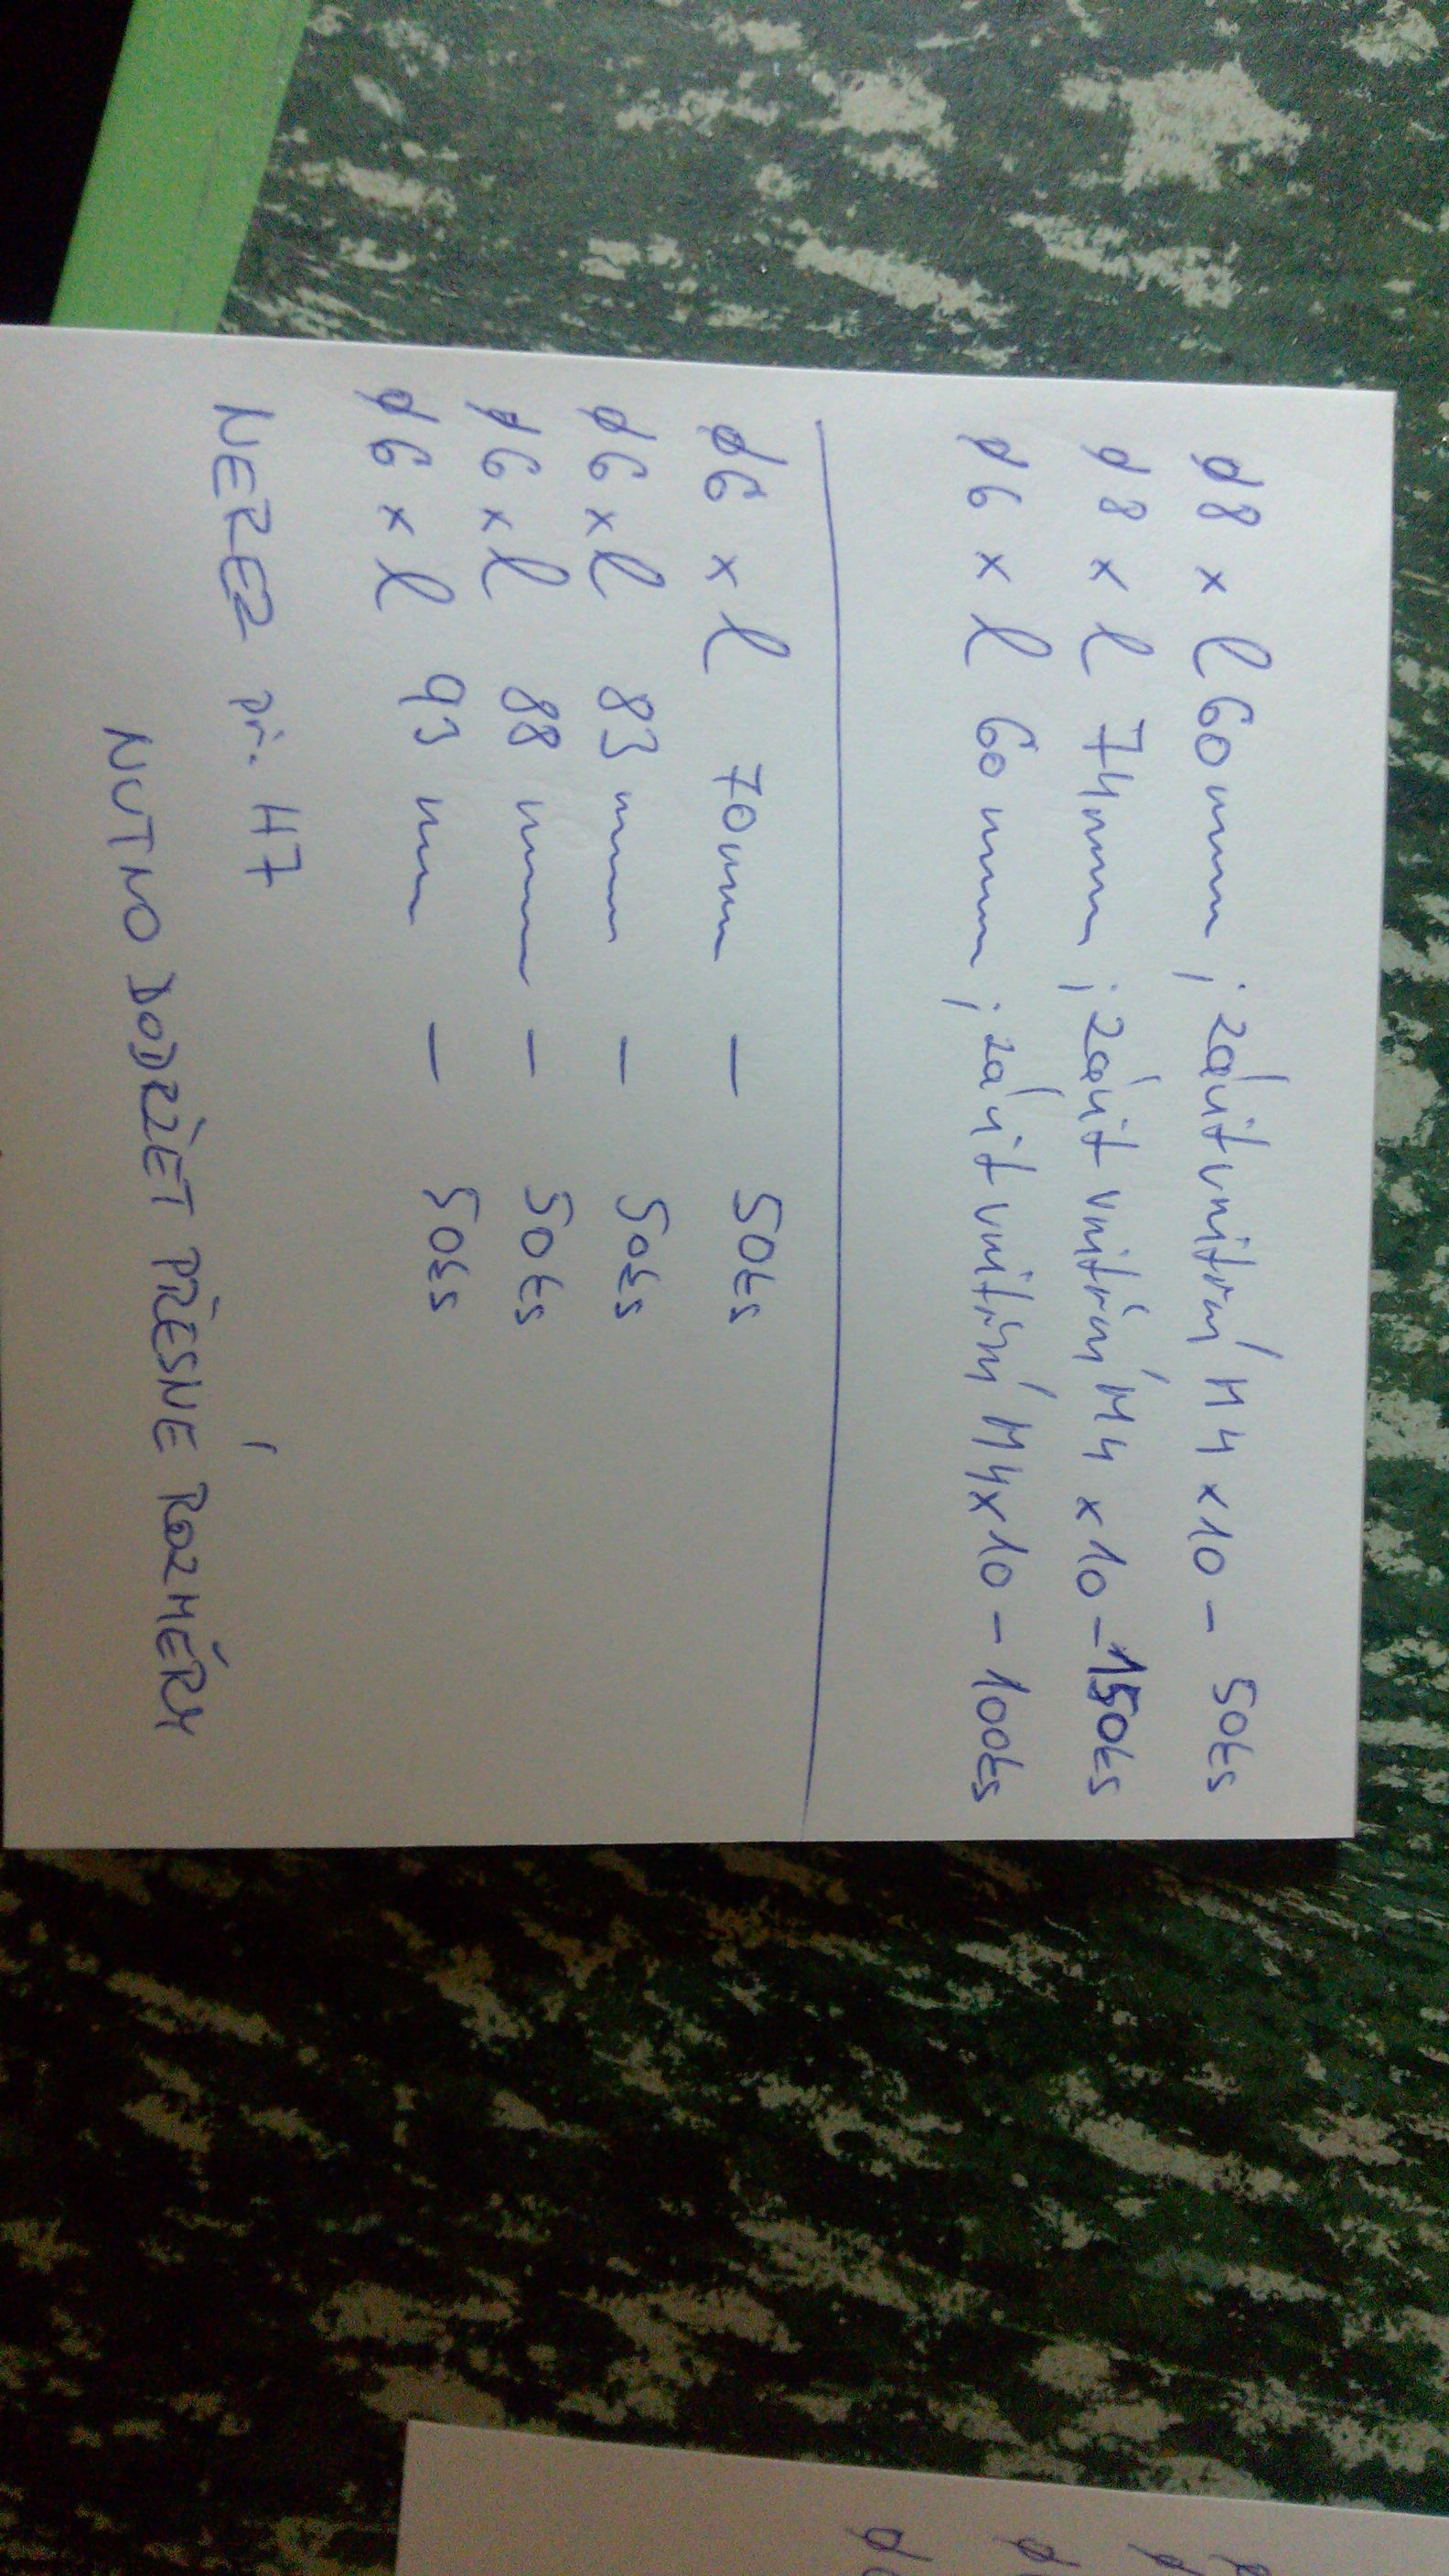 ø8 x l 60mm ; závit vnitřní M4 x 10 - 50ks
ø8 x l 74mm ; závit vnitřní M4 x 10 - 150ks
ø6 x l 60mm ; závit vnitřní M4x10 - 100ks
ø6 x l 70mm - 50ks
ø6 x l 83 mm - 50ks
ø6 x l 88 mm - 50ks
ø6 x l 93 mm - 50ks
NEREZ př. H7
NUTNO DODRŽET PŘESNÉ ROZMĚRY